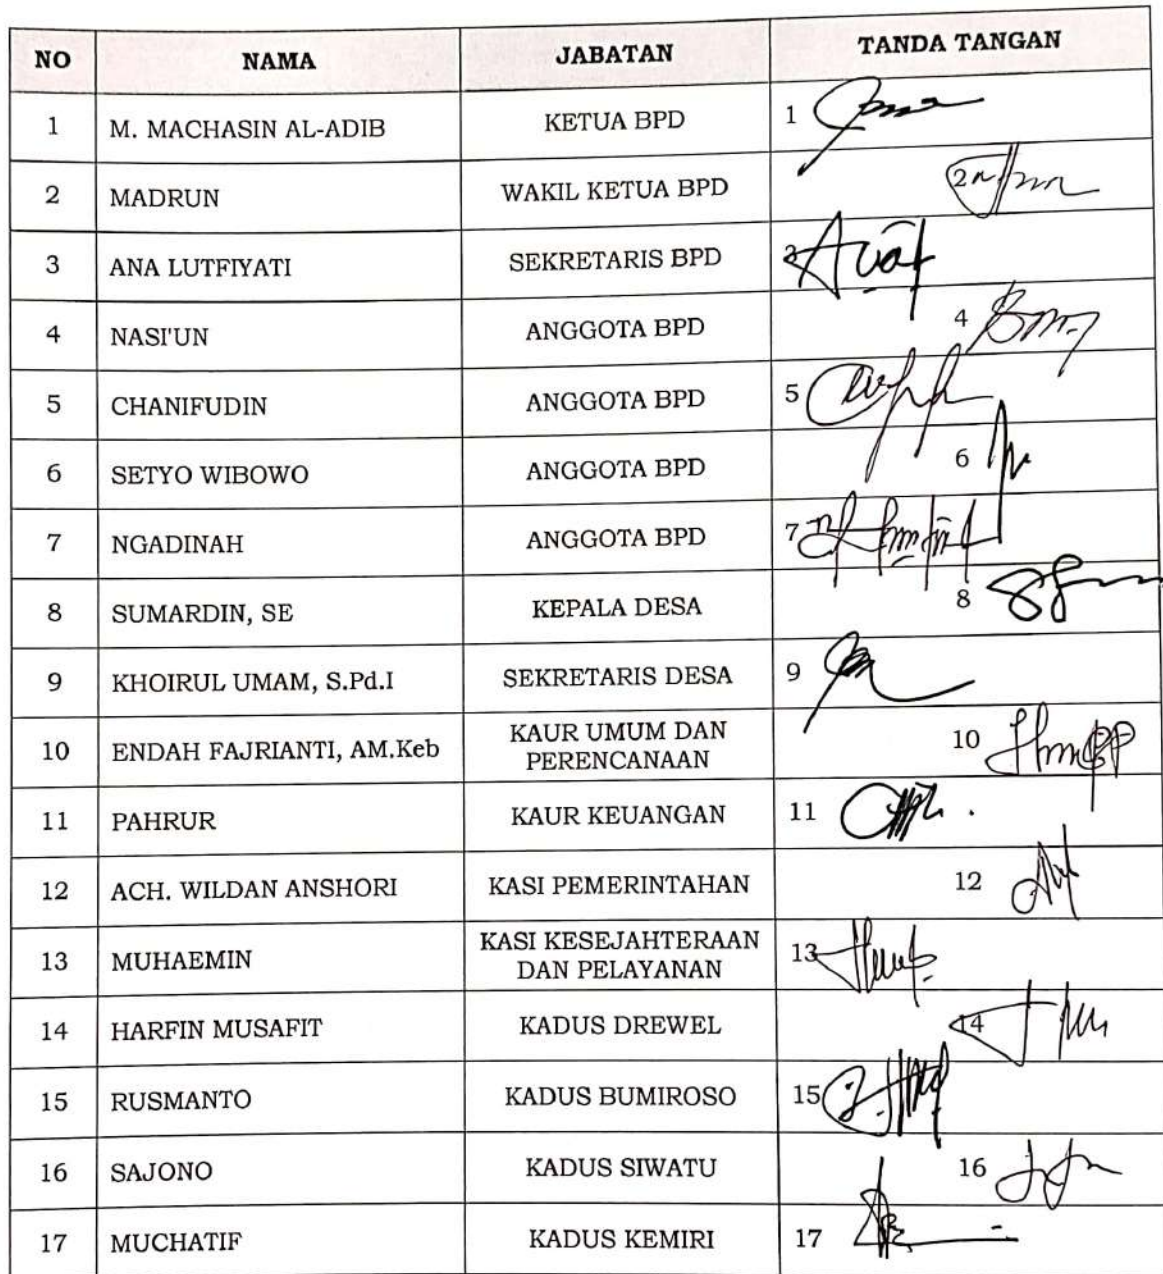 NO NAMA JABATAN TANDA TANGAN
1 M. MACHASIN AL-ADIB KETUA BPD 1
2 MADRUN WAKIL KETUA BPD 2
3 ANA LUTFIYATI SEKRETARIS BPD 3
4 NASI'UN ANGGOTA BPD 4
5 CHANIFUDIN ANGGOTA BPD 5
6 SETYO WIBOWO ANGGOTA BPD 6
7 NGADINAH ANGGOTA BPD 7
8 SUMARDIN, SE KEPALA DESA 8
9 KHOIRUL UMAM, S.Pd.I SEKRETARIS DESA 9
10 ENDAH FAJRIANTI, AM.Keb KAUR UMUM DAN
PERENCANAAN 10
11 PAHRUR KAUR KEUANGAN 11
12 ACH. WILDAN ANSHORI KASI PEMERINTAHAN 12
13 MUHAEMIN KASI KESEJAHTERAAN
DAN PELAYANAN 13
14 HARFIN MUSAFIT KADUS DREWEL 14
15 RUSMANTO KADUS BUMIROSO 15
16 SAJONO KADUS SIWATU 16
17 MUCHATIF KADUS KEMIRI 17